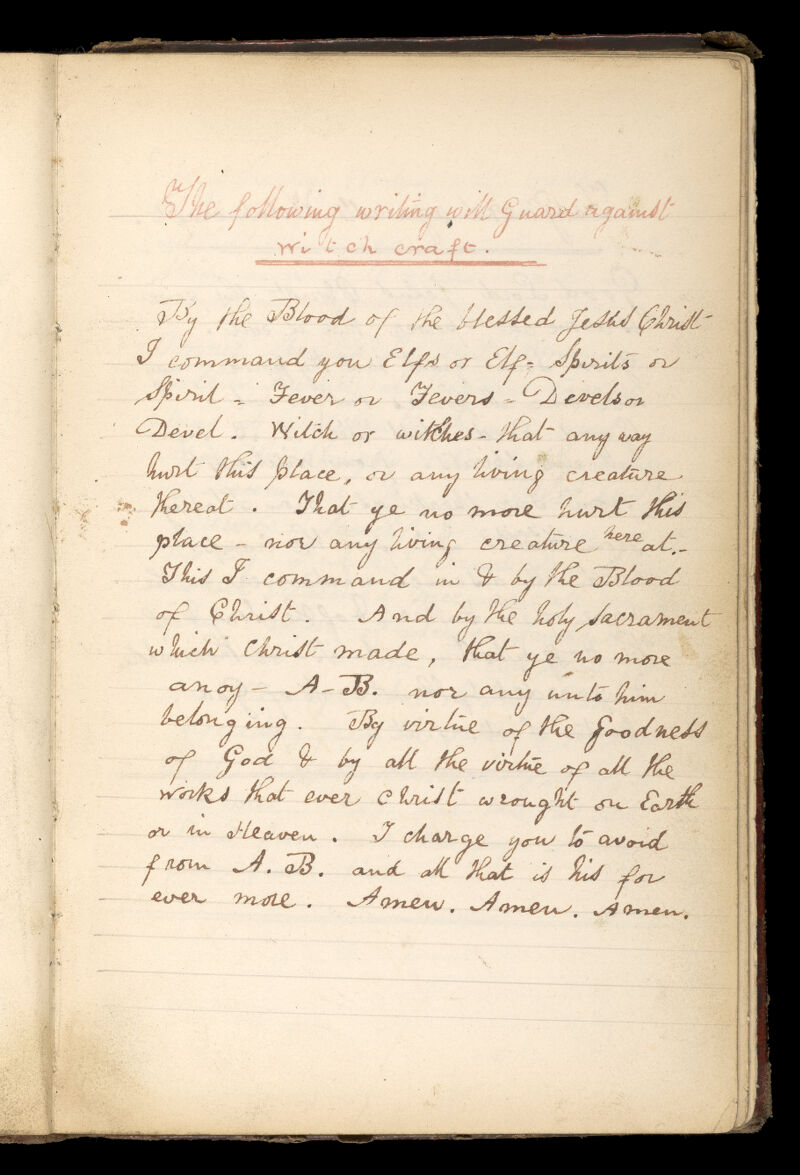 The following writing will Guard against
Witch craft.
By the Blood of the blessed Jesus Christ
I command you Elfs or Elf = Spirits or
Spirit = Fever or Fevers = Devels or
Devel. Witch or witches - that any way
hurt this place, or any living creature
thereat. That ye no more hurt this
place - nor any living creature here at.-
This I command in & by the Blood
of Christ. And by the holy sacrament
which Christ made, that ye no more
anoy - A-B. nor any unto him
belonging. By virtue of the Goodness
of God & by all the virtue of all the
works that ever Christ wrought on Earth
or in Heaven. I charge you to avoid
from A. B. and all that is his for
ever more. Amen. Amen. Amen.